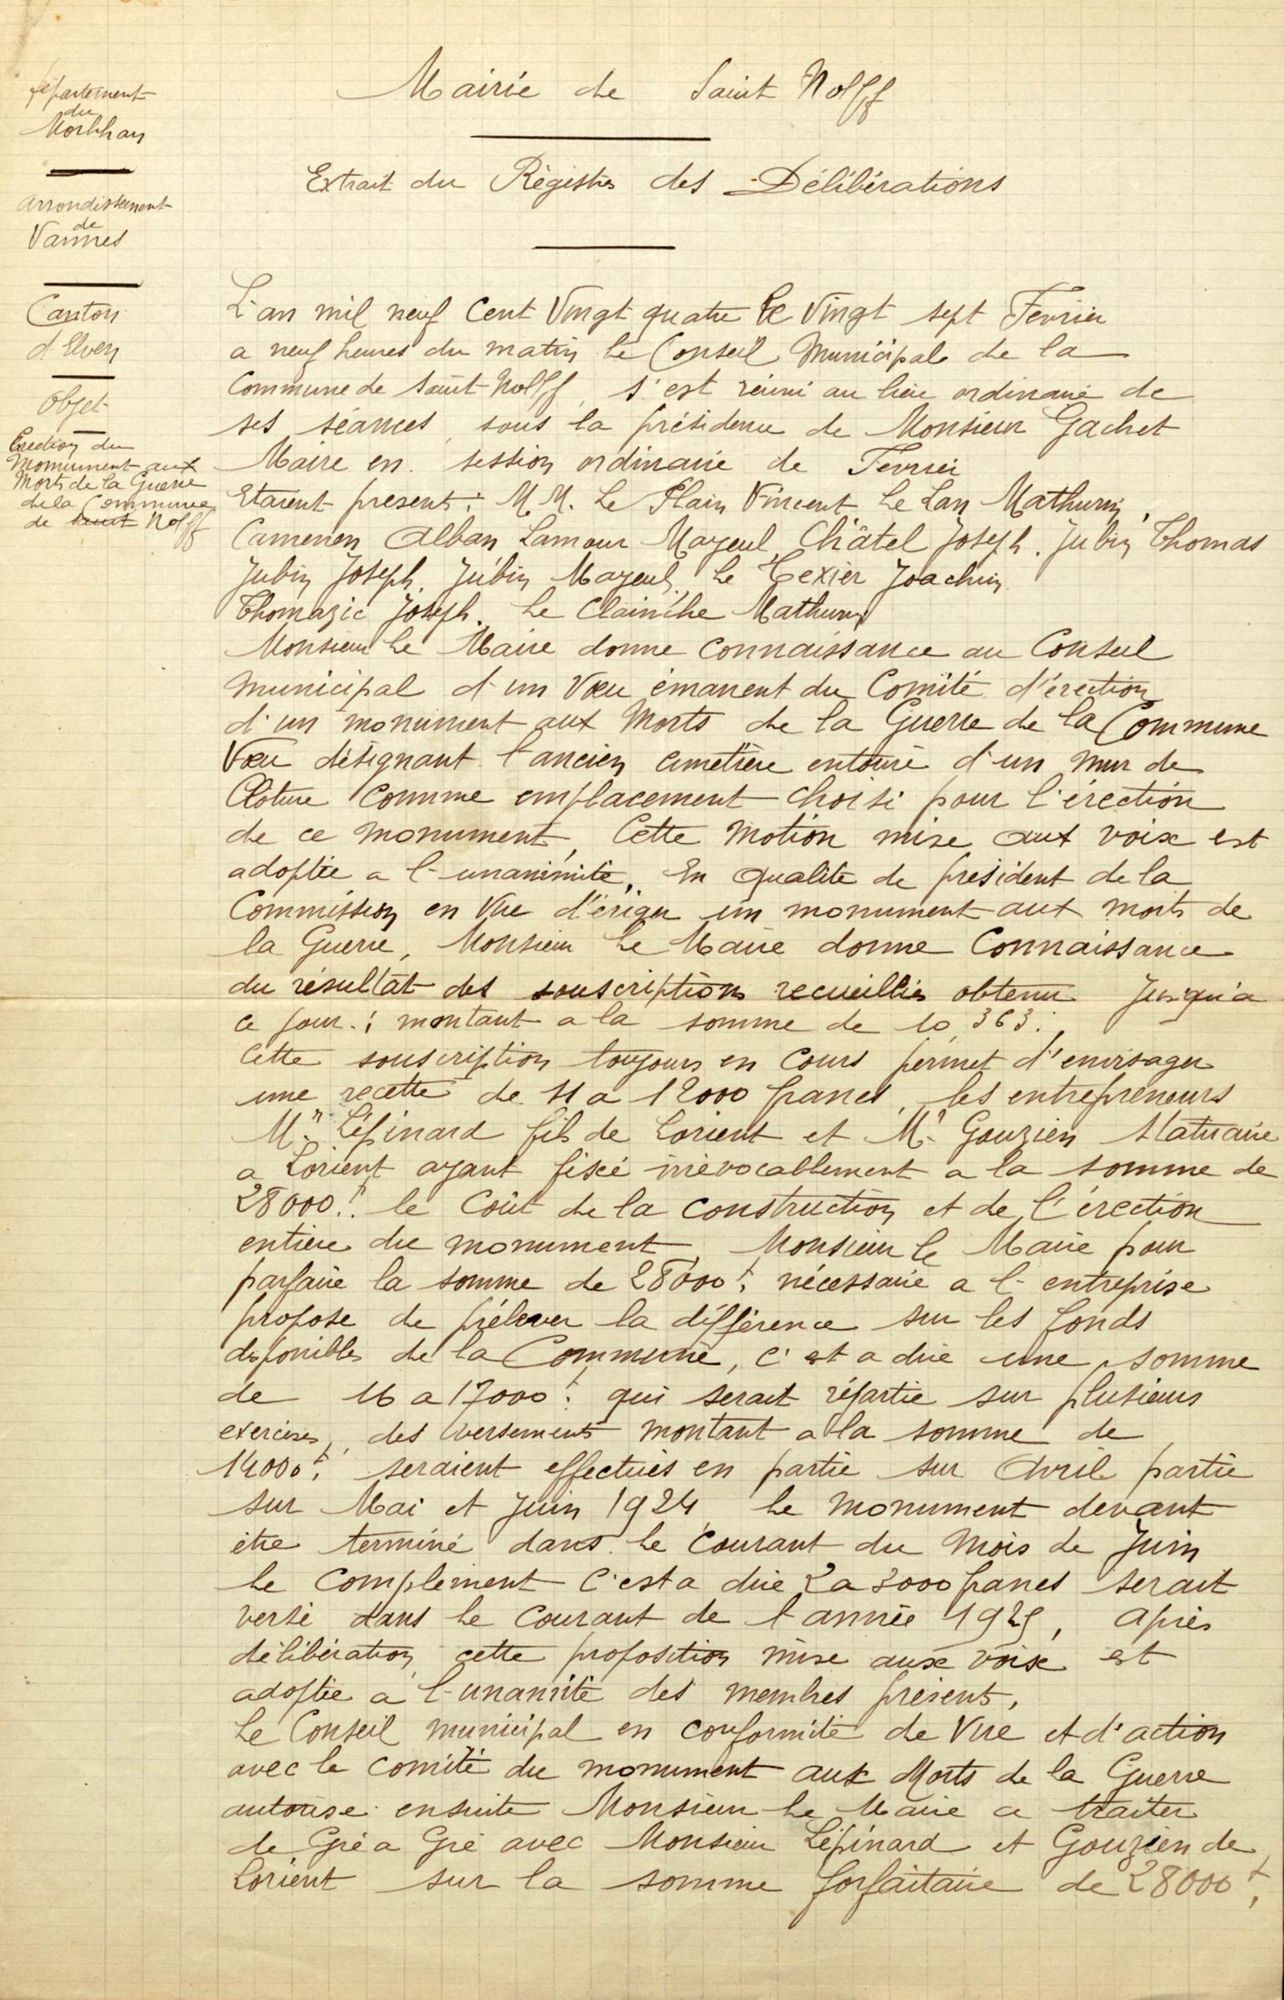 Mairie de Saint Nolff
Extrait du Régistre des Délibérations
Département
du
Morbihan
Arrondissement
de
Vannes
Canton
d'Elven
Objet
Erection du
Monument aux
Morts de la Guerre
de la Commune
de Saint Nolff
L'an mil neuf Cent Vingt quatre le Vingt sept Fevrier
a neuf heures du matin le Conseil Municipal de la
Commune de Saint Nolff, s'est réuni au lieu ordinaire de
ses séances, sous la présidence de Monsieur Gachet
Maire en session ordinaire de Fevrier
Etaient present: M.M. Le Plain Vincent Le Lan Mathurin,
Camenen Alban Lamour Mayeul, Châtel Joseph. Jubin Thomas
Jubin Joseph, Jubin Mayeul, Le Texier Joachim
Thomazic Joseph, Le Clainche Mathurin
Monsieur le Maire donne connaissance au Conseil
municipal d'un Vœu émanent du Comité d'érection
d'un monument aux Morts de la Guerre de la Commune
Vœu désignant l'ancien cimetière entouré d'un mur de
Cloture comme emplacement choisi pour l'érection
de ce monument, Cette motion mise aux voix est
adoptée a l'unanimité, En qualité de président de la
Commission en Vue d'ériger un monument aux morts de
la Guerre, Monsieur le Maire donne Connaissance
du résultat des souscriptions recueillies obtenu jusqu'a
ce jour: montant a la somme de 10,363.
Cette souscription toujours en cours permet d'envisager
une recette de 11 a 12000 francs, les entrepreneurs
Mr Lépinard fils de Lorient et Mr Gouzien Statuaire
a Lorient ayant fixé irrévocablement a la somme de
28000f. le Coût de la construction et de l'érection
entière du monument, Monsieur le Maire pour
parfaire la somme de 28000f. nécessaire a l'entreprise
propose de prélever la différence sur les fonds
disponibles de la Commune, c'est a dire une somme
de 16 a 17000f. qui serait répartie sur plusieurs
exercises, des versements montant a la somme de
14000f. seraient effectués en partie sur Avril partie
sur Mai et Juin 1924, le monument devant
être terminé dans le courant du Mois de Juin
le complément c'est a dire 2 a 3000 francs serait
versé dans le courant de l'année 1925, après
délibération, cette proposition mise aux voix est
adoptée a l'unanité des membres présents,
Le Conseil municipal en conformité de Vue et d'action
avec le comité du monument aux Morts de la Guerre
autorise ensuite Monsieur le Maire a traiter
de Gré a Gré avec Monsieur Lépinard et Gouzien de
Lorient sur la somme forfaitaire de 28000f.